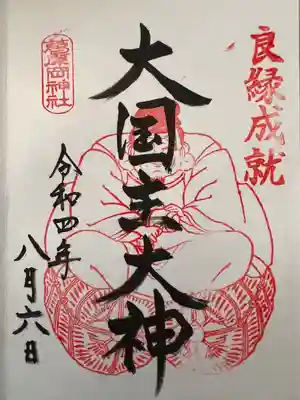 良縁成就
大国主大神
令和四年
八月六日